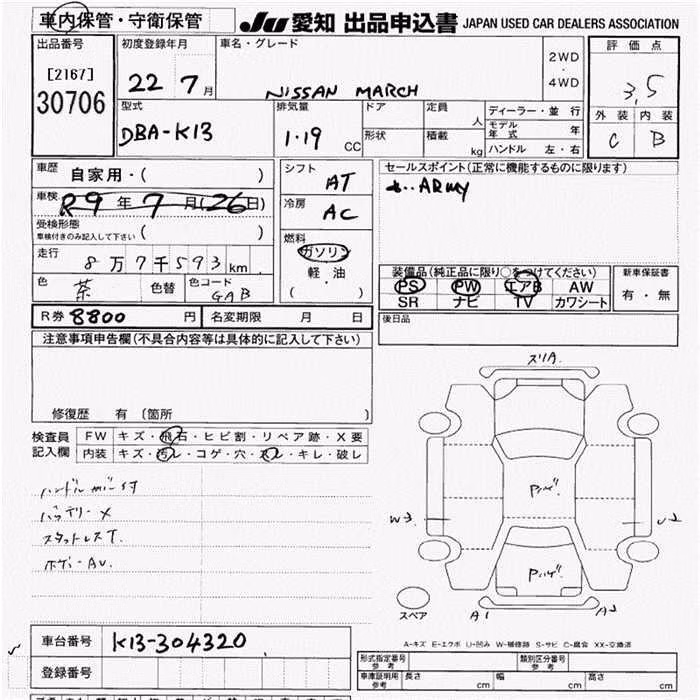 車内保管・守衛保管 JU 愛知 出品申込書 JAPAN USED CAR DEALERS ASSOCIATION
出品番号 初度登録年月 車名・グレード 評価点
[2167] 22 7月 NISSAN MARCH 2WD・4WD 3,5
30706 型式 排気量 ドア 定員 人 ディーラー・並行 外装 内装
DBA-K13 1.19 CC 形状 積載 kg モデル年式 年 C B
ハンドル 左・右
車歴 自家用・( ) シフト AT セールスポイント(正常に機能するものに限ります)
車検 R9年7月(26日) 冷房 AC
受検形態 車検付きのみ記入して下さい ( ) 燃料
走行 8万7千593km ガソリン 装備品(純正品に限り○をつけてください) 新車保証書
色 茶 色替 色コード GAB 軽油 PS PW エアB AW 有・無
( ) SR ナビ TV カワシート
R券 8800円 名変期限 月 日 後日品
注意事項申告欄(不具合内容等は具体的に記入して下さい)
修復歴 有 〔箇所 〕
検査員記入欄 FW キズ・飛石・ヒビ割・リペア跡・X要
内装 キズ・汚レ・コゲ・穴・スレ・キレ・破レ
バッテリーX
スタットレスT.
スリA.
Pハゲ.
W3 U2
Pハゲ.
スペア A1 A2
A-キズ E-エクボ U-凹み W-補修跡 S-サビ C-腐食 XX-交換済
車台番号 K13-304320
登録番号
形式指定番号 参考 類別区分番号 参考
車庫証明用 参考 長さ cm 幅 cm 高さ cm